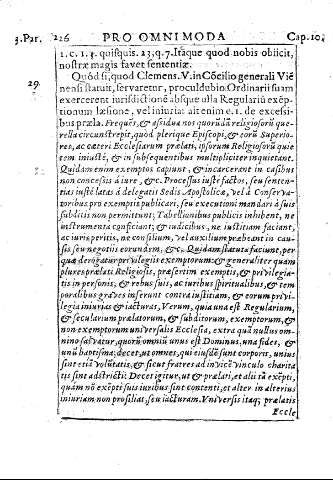 3. Par. 226 PRO OMNIMODA Cap. 10.
1. c. 1. §. quisquis. 23. q. 7. Itaque quod nobis obiicit,
nostræ magis favet sententiæ.
29. Quòd si, quod Clemens. V. in Cōcilio generali Viē
nensi statuit, servaretur, proculdubio. Ordinarii suam
exercerent iurisdictionē absque ulla Regulariū exēp-
tionum læsione, vel iniuria: ait enim e. 1. de excessi-
bus præla. Frequēs, & assidua nos quorūdā religiosorū que-
rella circunstrepit, quòd plerique Episcopi, & eorū Superio-
res, ac cæteri Ecclesiarum prælati, ipsorum Religiosorū quie
tem iniustè, & in subsequentibus multipliciter inquietant.
Quidam enim exemptos capiunt, & incarcerent in casibus
non concessis à iure, &c. Processus iustè factos, seu senten-
tias iustè latas á delegatis Sedis Apostolicæ, vel á Conserva-
toribus pro exemptis publicari, seu executioni mandari à suis
subditis non permittunt; Tabellionibus publicis inhibent, ne
instrumenta conficiant; & iudicibus, ne iustitiam faciant,
ac iurisperitis, ne consilium, vel auxilium præbeant in cau-
sis, seu negotiis eorundem, &c. Quidam statuta faciunt, per
quæ derogatur privilegiis exemptorum: & generaliter quam
plures prælati Religiosis, præsertim exemptis, & privilegia-
tis in personis, & rebus suis, ac iuribus spiritualibus, & tem
poralibus graves inferunt contra iustitiam, & eorum privi-
legia iniurias & iacturas. Verum, quia una est Regularium,
& secularium prælatorum, & subditorum, exemptorum, &
non exemptorum universalis Ecclesia, extra quā nullus om-
nino salvatur, quorū omniū unus est Dominus, una fides, &
unū baptisma; decet, ut omnes, qui eiusdē sunt corporis, unius
sint etiā volūtatis, & sicut fratres ad invicē vinculo charita
tis sint adstricti: Decet igitur, ut & prælati, et alii tā exēpti,
quàm nō exēpti suis iuribus sint contenti, et alter in alterius
iniuriam non prosiliat, seu iacturam. Vniversis itaq; prælatis
Eccle